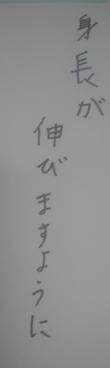 身長が
伸びますように